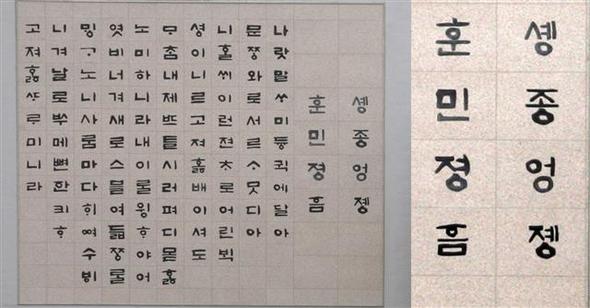 솅종엉졩
훈민졍흠
나랏말ᄊᆞ미듕귁에달아
문ᄍᆞᆼ와로서르ᄉᆞᄆᆞᆺ디아
니ᄒᆞᆯᄊᆡ이런젼ᄎᆞ로어린ᄇᆡᆨ
셩이니르고져홇배이셔도
ᄆᆞᄎᆞᆷ내제ᄠᅳ들시러펴디몯홇
노미하니라내이ᄅᆞᆯ윙ᄒᆞ야어
엿비너겨새로스믈여듧ᄍᆞᆼᄅᆞᆯ
ᄆᆡᇰᄀᆞ노니사ᄅᆞᆷ마다ᄒᆡᅇᅧ수ᄫᅵ
니겨날로ᄡᅮ메뼌한킈ᄒᆞ
고져홇ᄯᆞᄅᆞ미니라
솅종엉졩
훈민졍흠